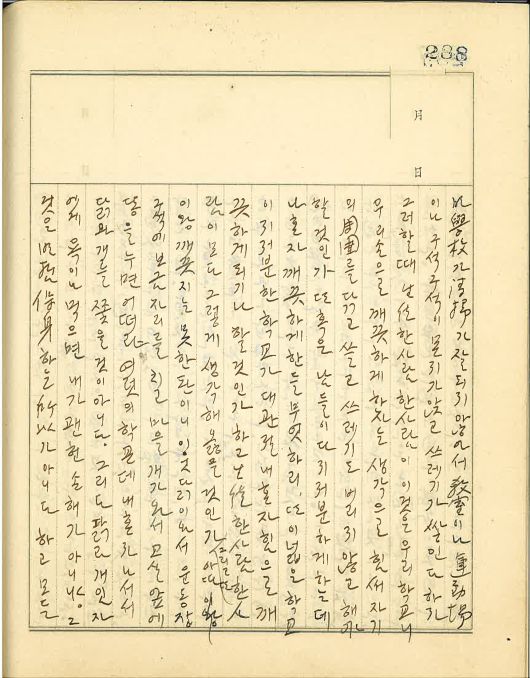 288
月
日
만 學校가 淸掃가 잘 되지 않아서 敎室이나 運動場
이나 구석구석이 몬지가 앉고 쓰레기가 쌓인다 하자
그러할 때 生徒 한사람 한사람이 이것은 우리 學校니
우리 손으로 깨끗하게 하자는 생각으로 힘써 자기
의 周圍를 닦고 쓸고 쓰레기도 버리지 않고 해야
할 것인가 또 혹은 남들이 다 지저분하게 하는데
나 혼자 깨끗하게 한들 무엇하리, 또 이 넓은 학교
이 지저분한 학교가 대관절 내 혼자 힘으로 깨
끗하게 되기나 할 것인가 하고 生徒 한사람 한사
람이 모다 그렇게 생각해 옳을 것인가 그리고 또 아따 이왕
이왕 깨끗지는 못한 판이니 잇다
구석에 보금자리를 칠 마을 개가 와서 교실 앞에
똥을 누면 어떠랴 여럿의 학교인데 내 혼자 나서서
닭과 개를 쫓을 것이 아니다. 그리다 닭과 개 임자
에게 욕이나 먹으면 내가 괜한 손해가 아니냐, 그
것은 明哲保身하는 所以가 아니다 하고 모든